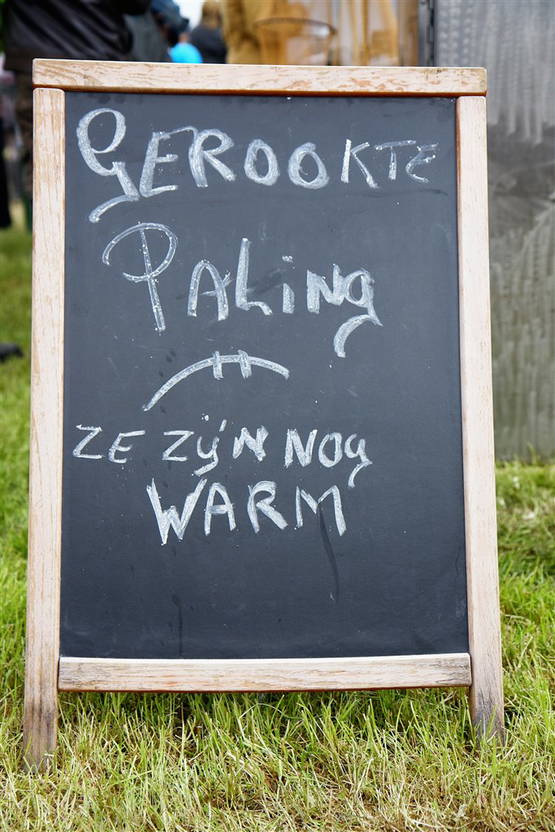 GEROOKTE
PALiNg
ZE ZijN NOg
WARM